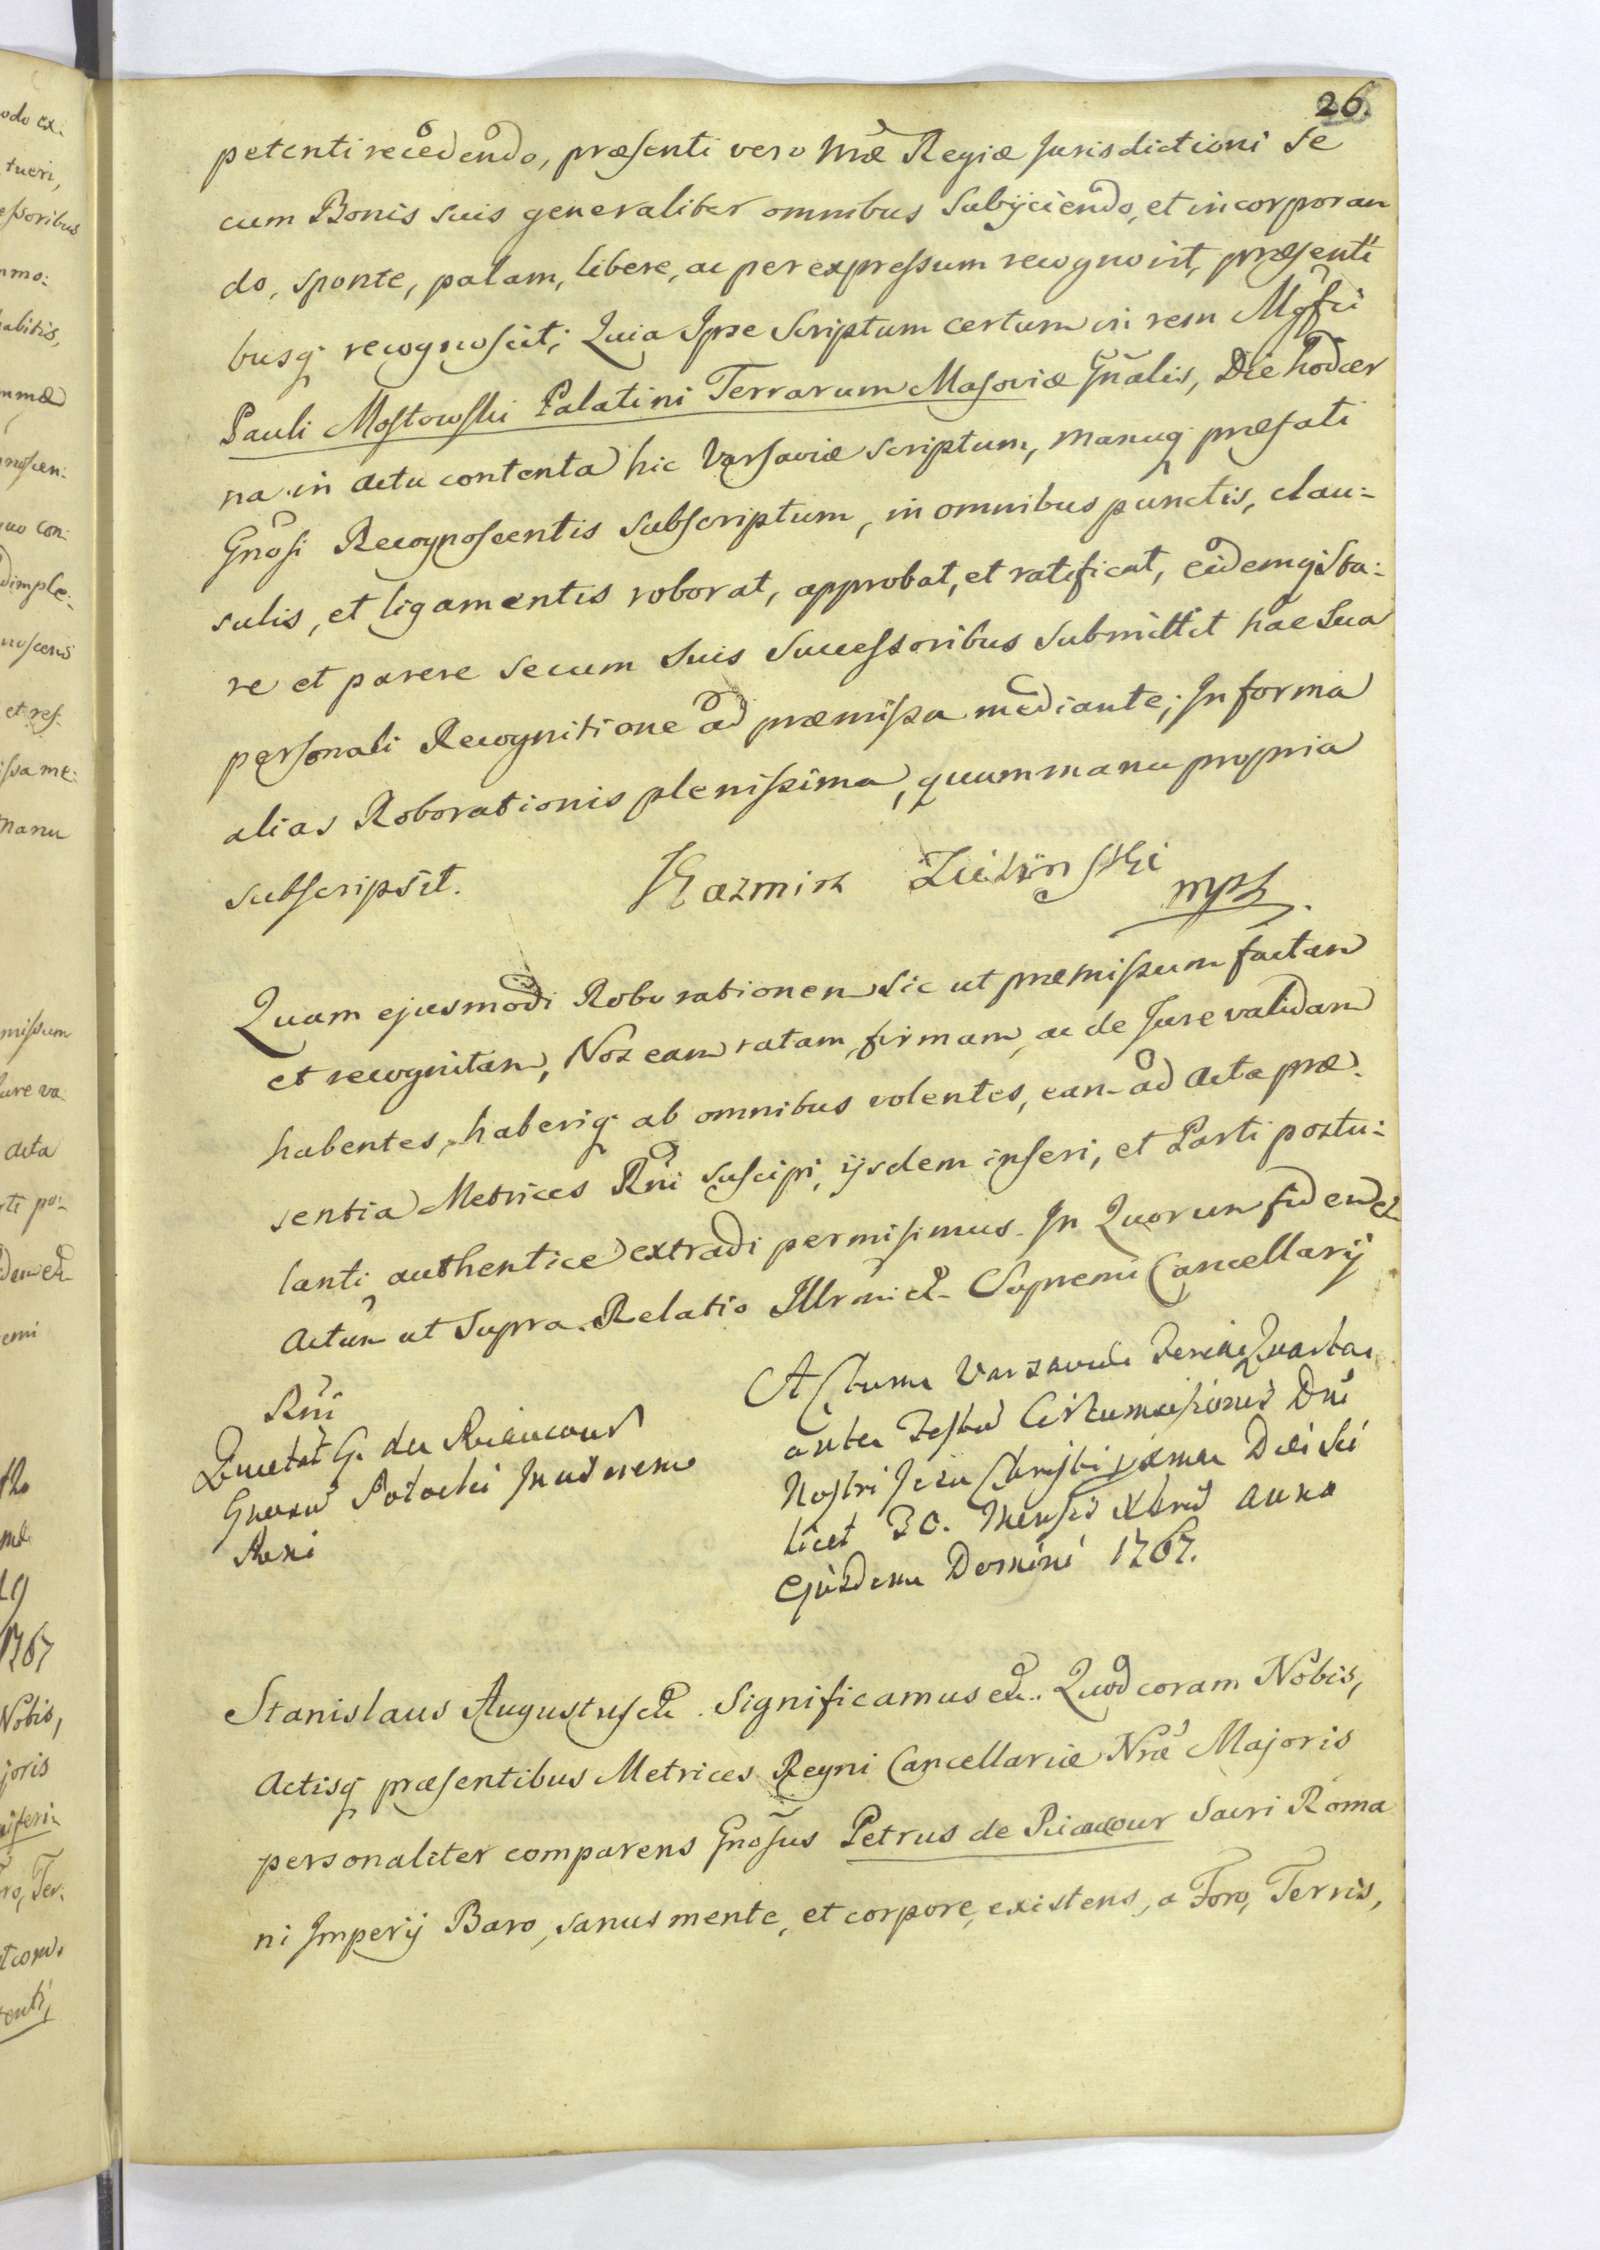 26.
petenti recedendo, præsenti vero Nræ Regiæ Jurisdictioni Se
cum Bonis suis generaliter omnibus Subijciendo, et incorporan
do, sponte, palam, libere, ac per expressum recognovit, præsenti
busq. recognoscit; Quia Ipse Scriptum certum in rem Mgfci
Pauli Mostowski Palatini Terrarum Masoviæ Gnalis, Die hodier
na in actu contenta hic Varsaviæ scriptum, manuq. præfati
Gnosi Recognoscentis subscriptum, in omnibus punctis, clau:
sulis, et ligamentis roborat, approbat, et ratificat, eidemq. Sta:
re et parere secum Suis Successoribus submittit hac Sua
personali Recognitione ad præmissa mediante; In forma
alias Roborationis plenissima, quam manu propria
subscripsit.
Kazmirz
mpr
Quam ejusmodi Roborationem sic ut præmissum factam
et recognitam, Nos eam ratam, firmam, ac de Jure validam
habentes, haberiq. ab omnibus volentes, eam ad Acta præ:
sentia Metrices Rni suscipi, ijsdem inseri, et Parti postu:
lanti authentice extradi permisimus. In Quorum fidem et
Actum ut Supra. Relatio Illrmi et Supremi Cancellarij
Rni
G. de Riaucour
Gnosus Potocki
Actum Varsaviæ Feria Quarta
ante Festum Circumcisionis Dni
Nostri Jesu Christi proxima Die sci
licet 30. Mensis Xbris Anno
Ejusdem Domini 1767.
Stanislaus Augustus etc. Significamus etc. Quod coram Nobis,
Actisq præsentibus Metrices Regni Cancellariæ Nræ Majoris
personaliter comparens Gnosus Petrus de Riaucour Sacri Roma
ni Imperij Baro, sanus mente, et corpore, existens, a Foro, Terris,